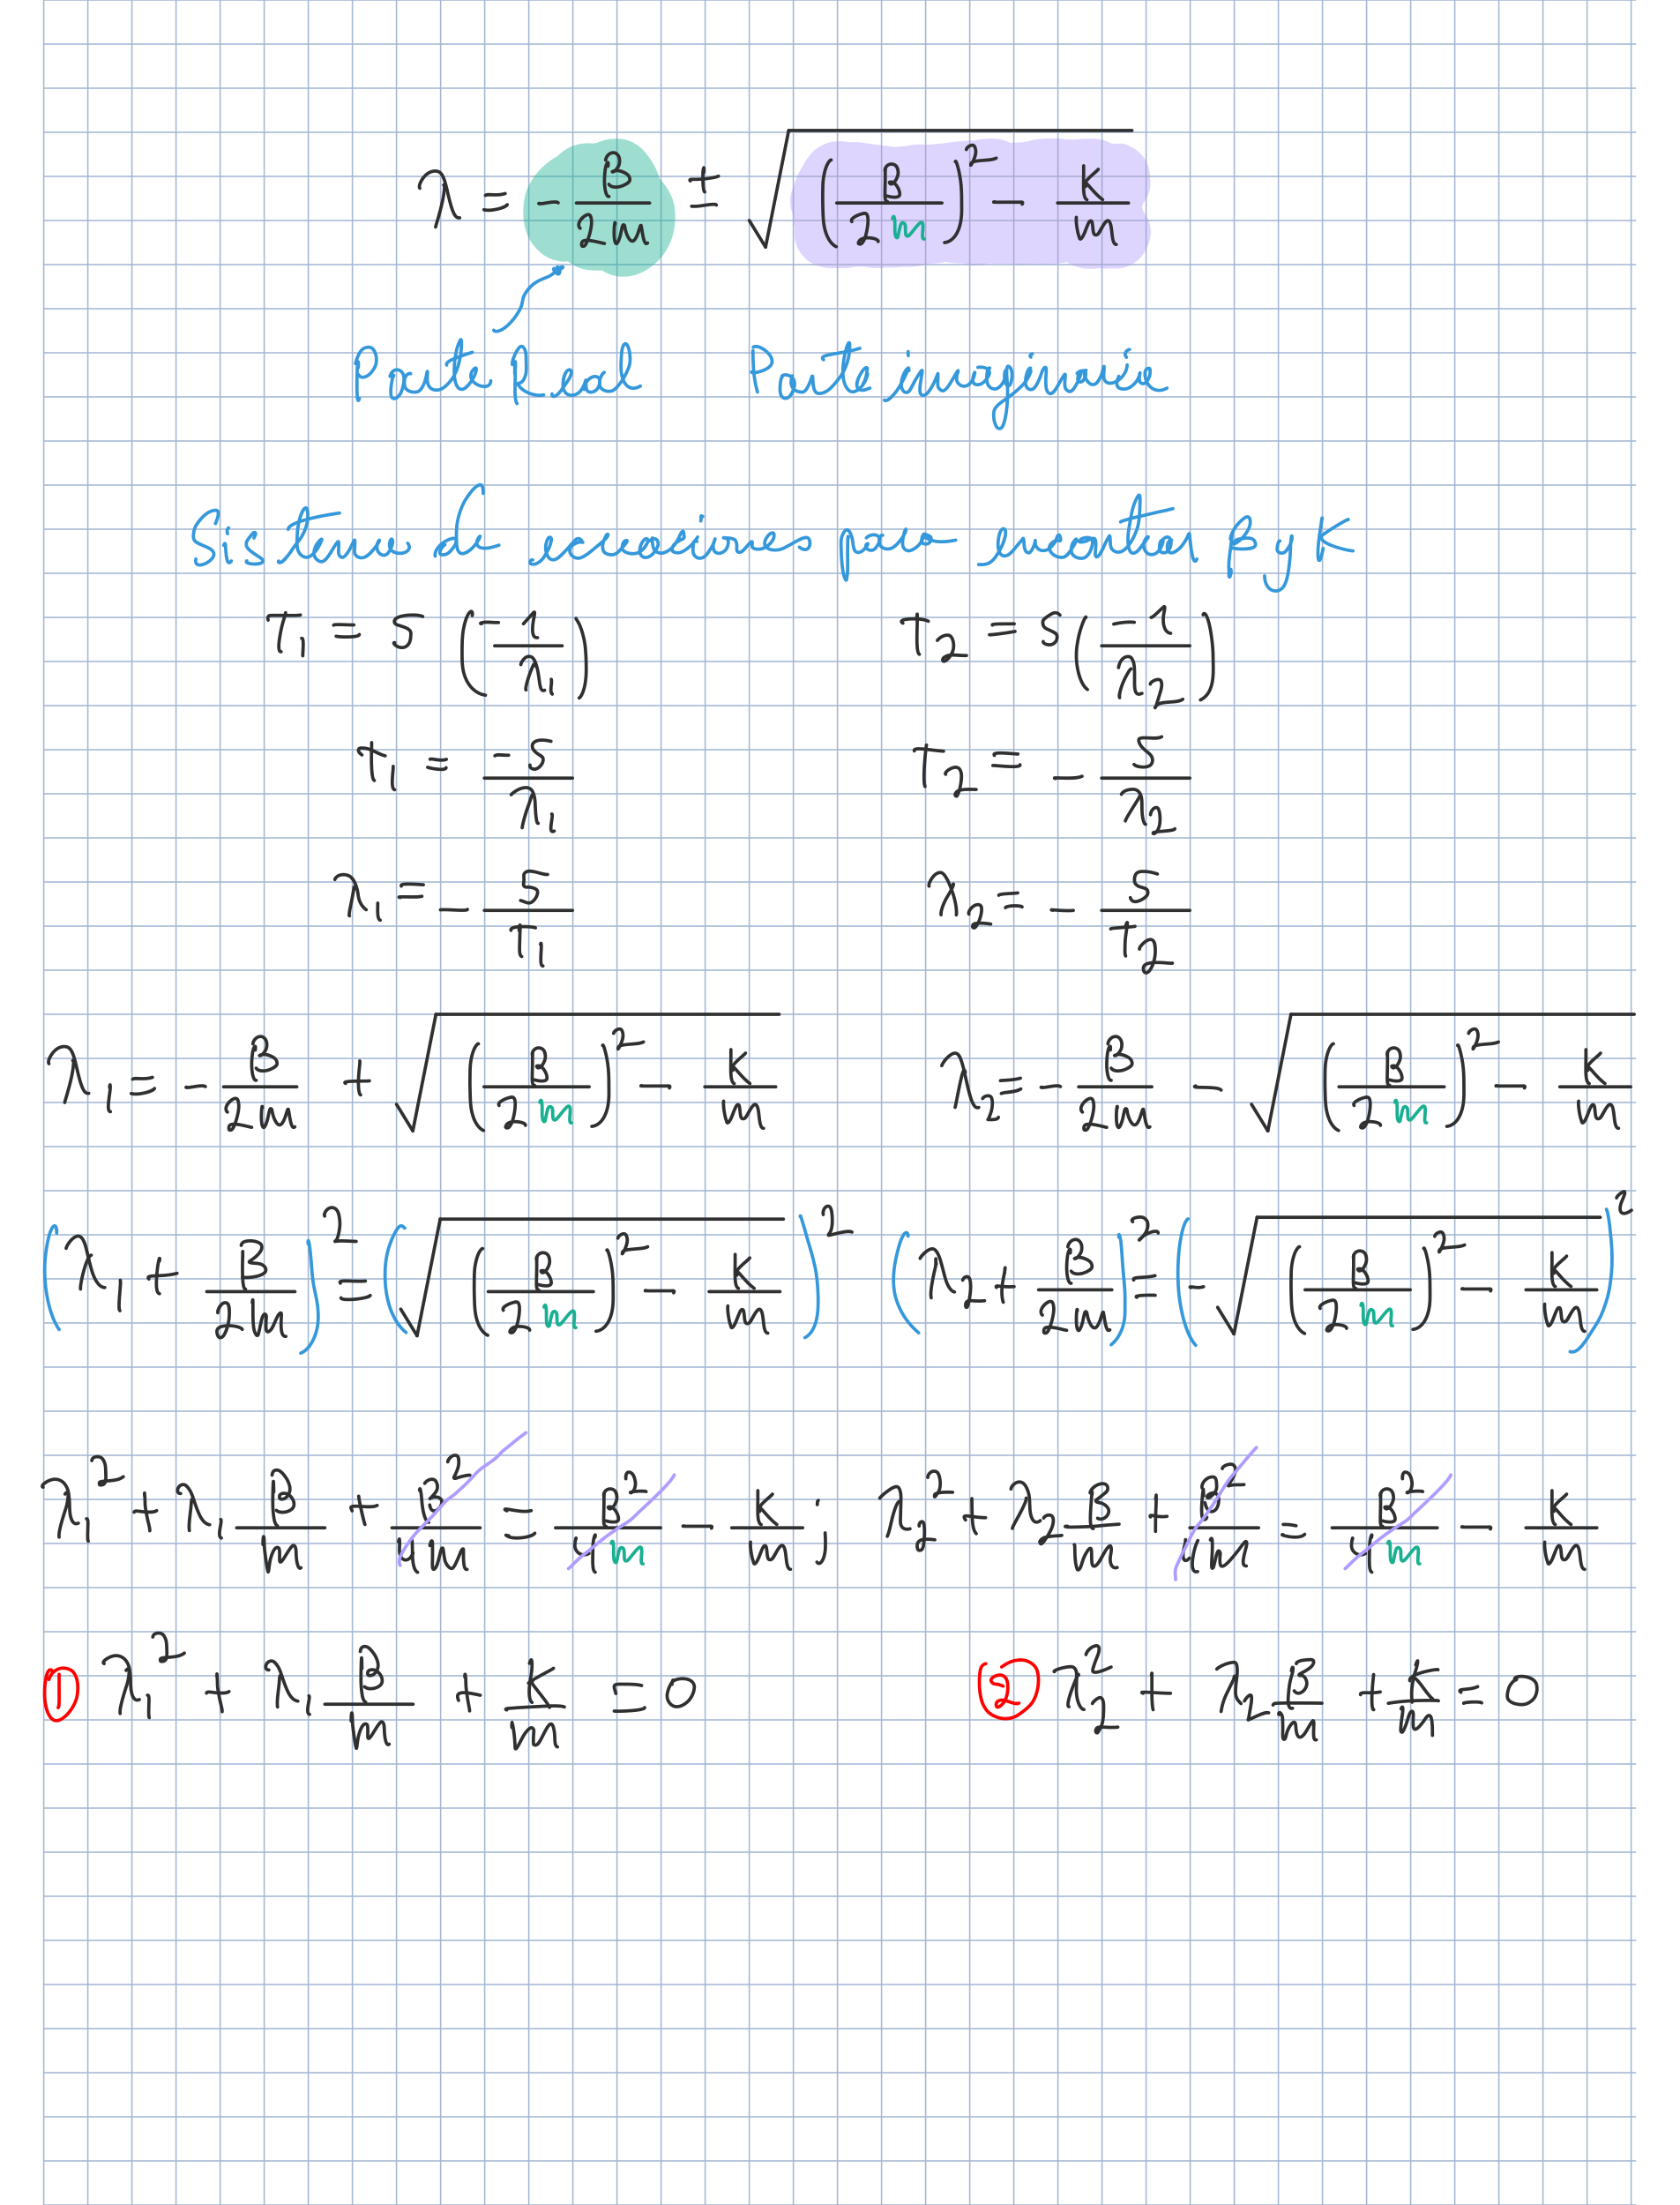 λ = - β/2m ± √((β/2m)² - K/m)
Parte Real Parte imaginaria
Sistema de ecuaciones para encontrar β y K
T₁ = 5 (-1/λ₁) T₂ = 5 (-1/λ₂)
T₁ = -5/λ₁ T₂ = - 5/λ₂
λ₁ = - 5/T₁ λ₂ = - 5/T₂
λ₁ = - β/2m + √((β/2m)² - K/m) λ₂ = - β/2m - √((β/2m)² - K/m)
(λ₁ + β/2m)² = (√((β/2m)² - K/m))² (λ₂ + β/2m)² = (-√((β/2m)² - K/m))²
λ₁² + λ₁ β/m + β²/4m = β²/4m - K/m ; λ₂² + λ₂ β/m + β²/4m = β²/4m - K/m
① λ₁² + λ₁ β/m + K/m = 0 ② λ₂² + λ₂ β/m + K/m = 0